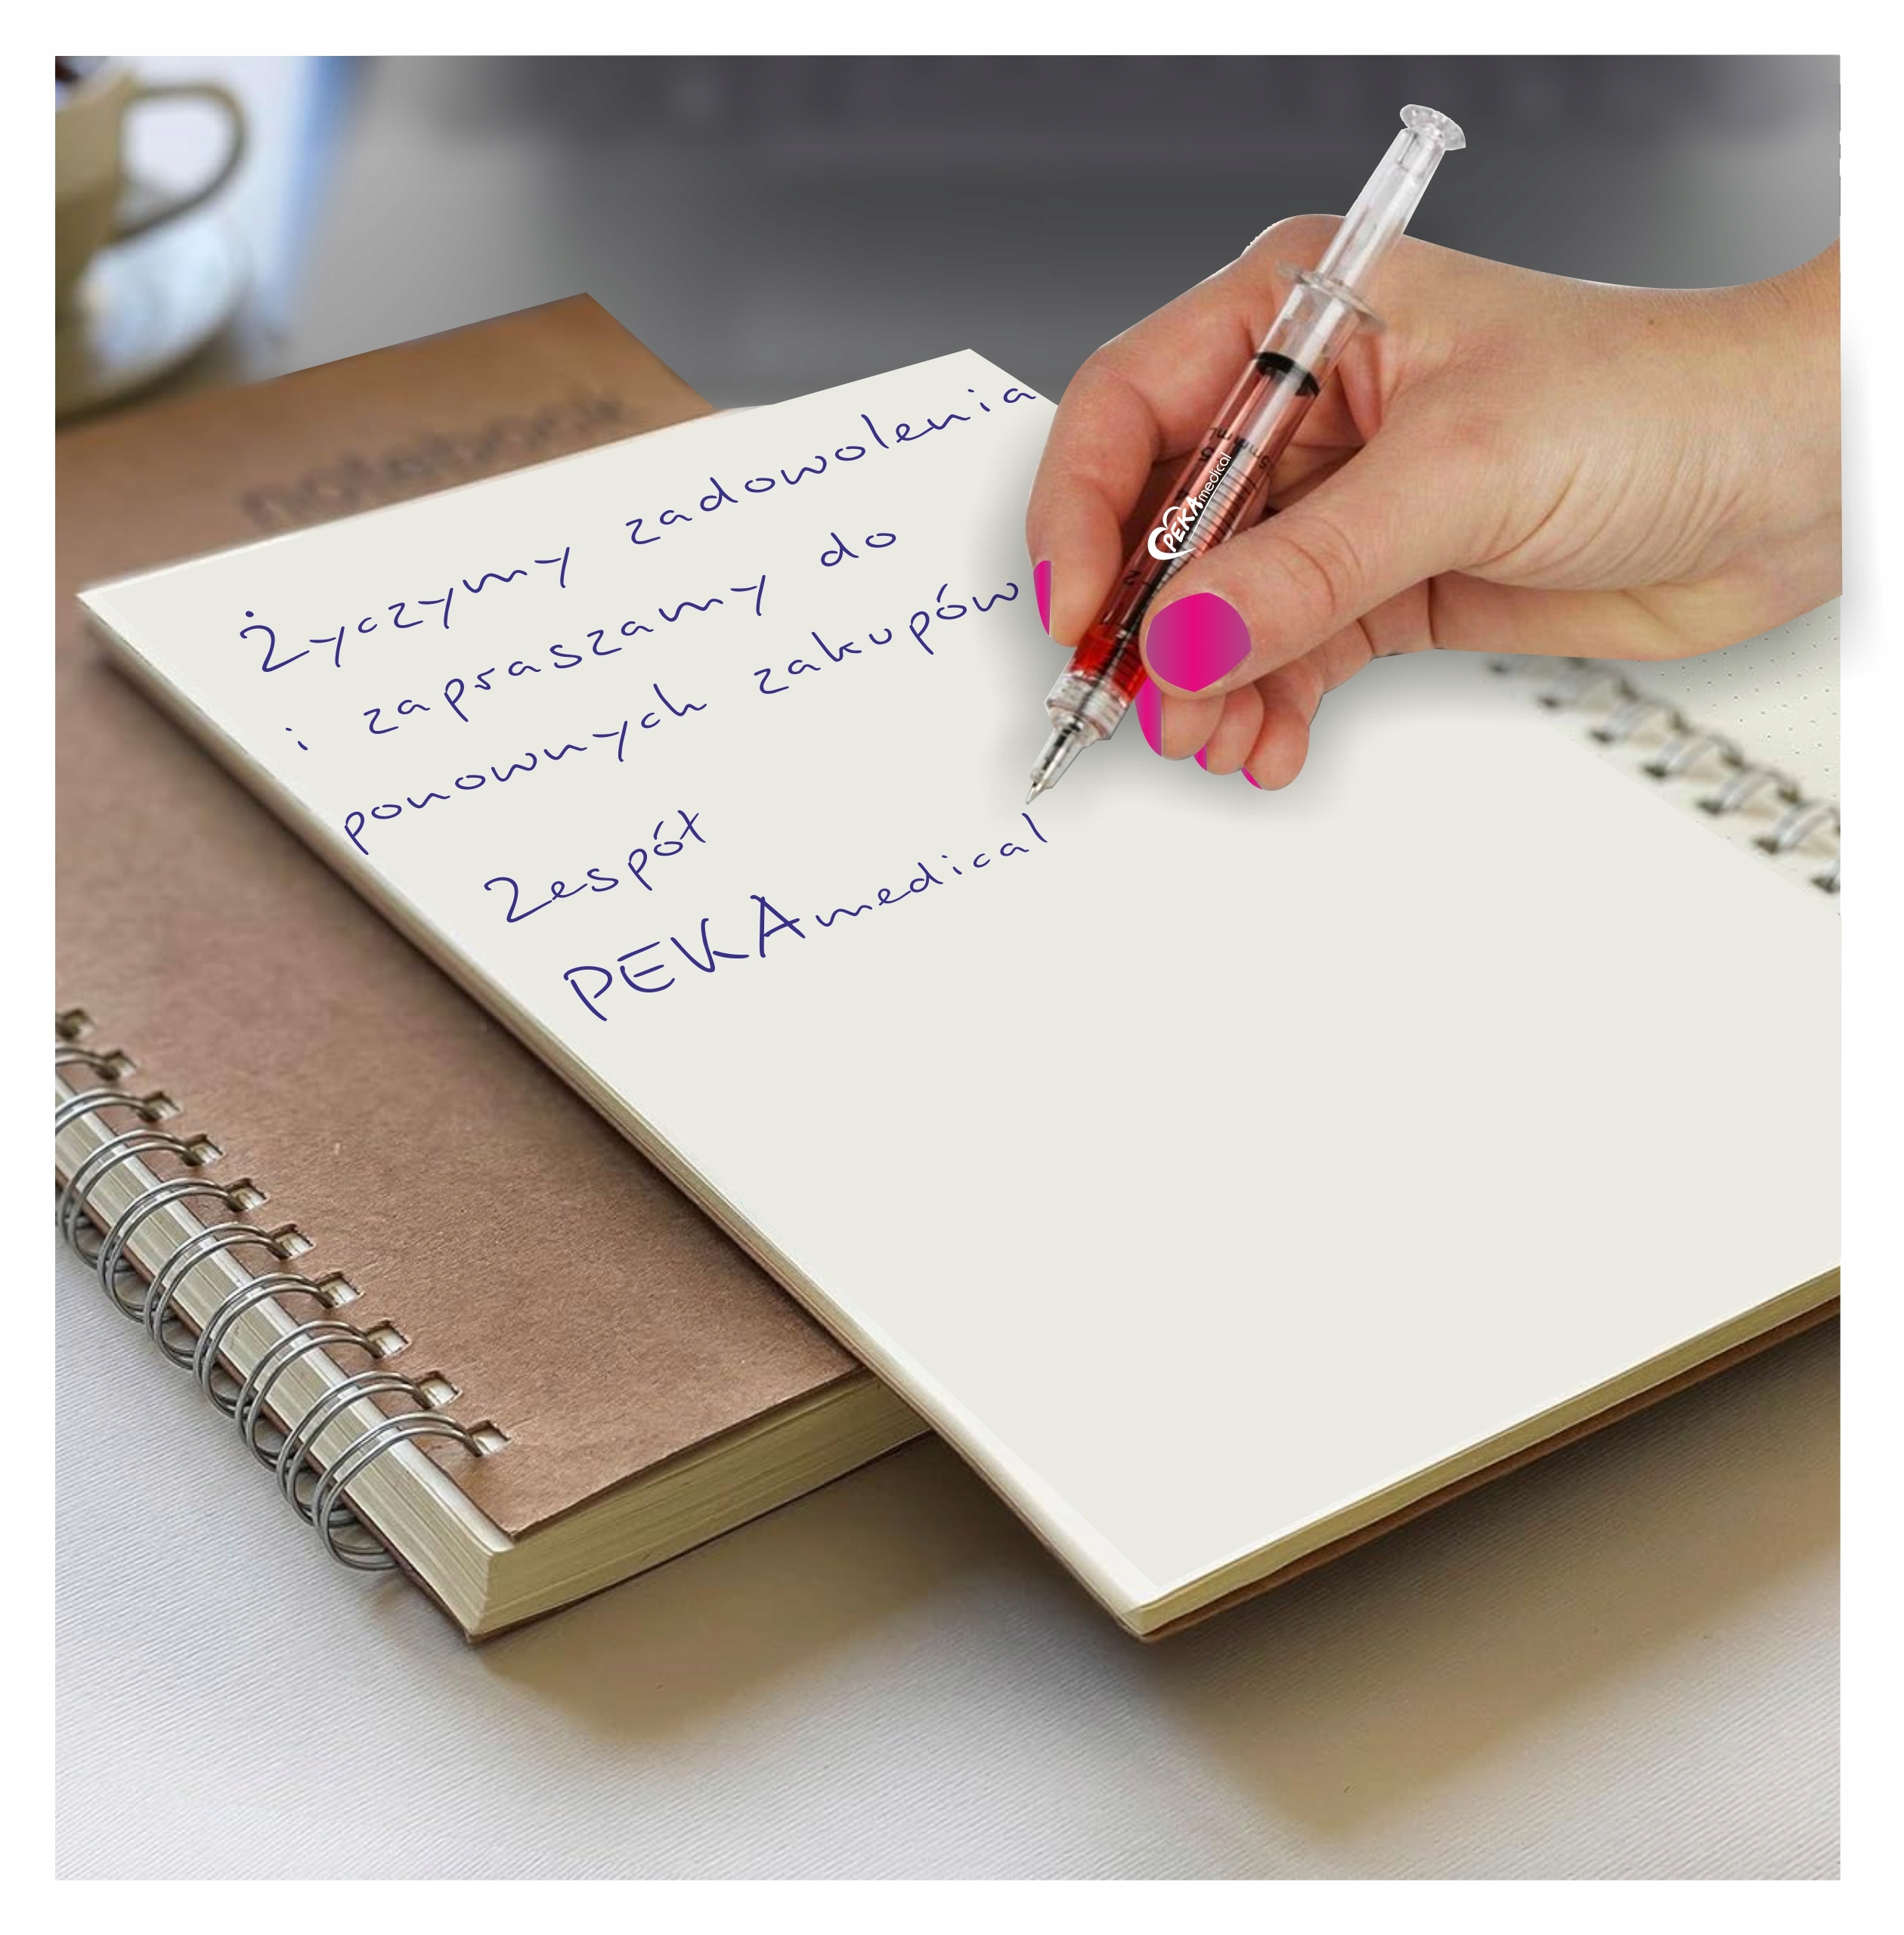 notebook
Życzymy zadowolenia
i zapraszamy do
ponownych zakupów
Zespół
PEKAmedical
PEKAmedical
5
2